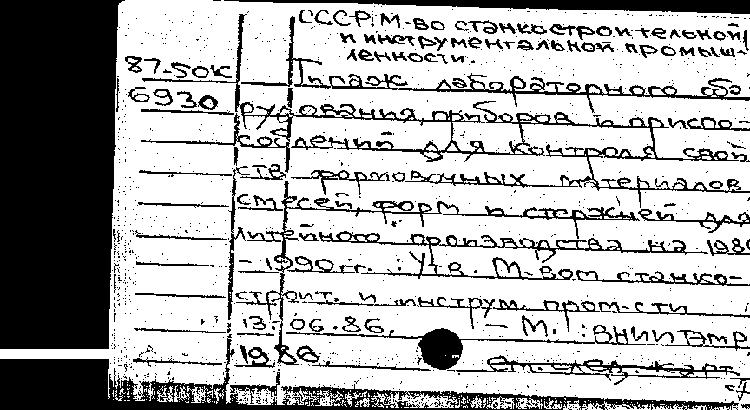 СССР. М-во станкостроительной
и инструментальной промыш-
ленности.
87-50к
6930
Типаж лабораторного обо
рудования, приборов и приспо-
соблений для контроля свой
ств формовочных материалов
смесей, форм и стержней для
литейного производства на 1986
-1990 гг. : Утв. М-вом станко-
строит. и инструм. пром-сти
13.06.86. - М. : ВНИИТЭМР
1986.
см. след. карт.